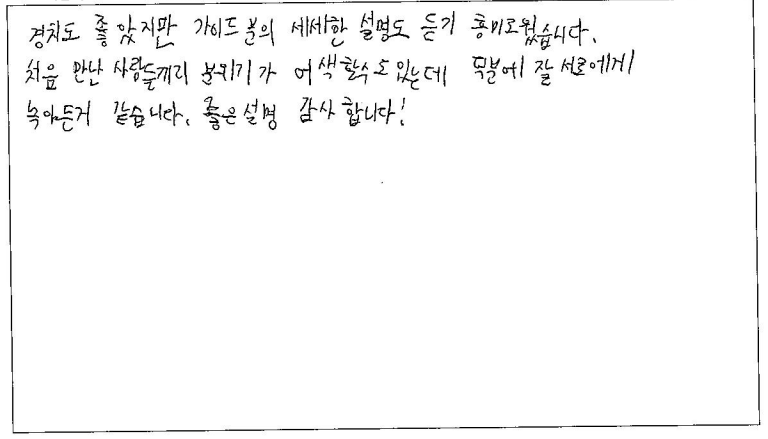 경치도 좋았지만 가이드 분의 세세한 설명도 듣기 흥미로웠습니다.
처음 만난 사람들끼리 분위기가 어색할수도있는데 덕분에 잘 서로에게
녹아든거 같습니다. 좋은설명 감사 합니다!